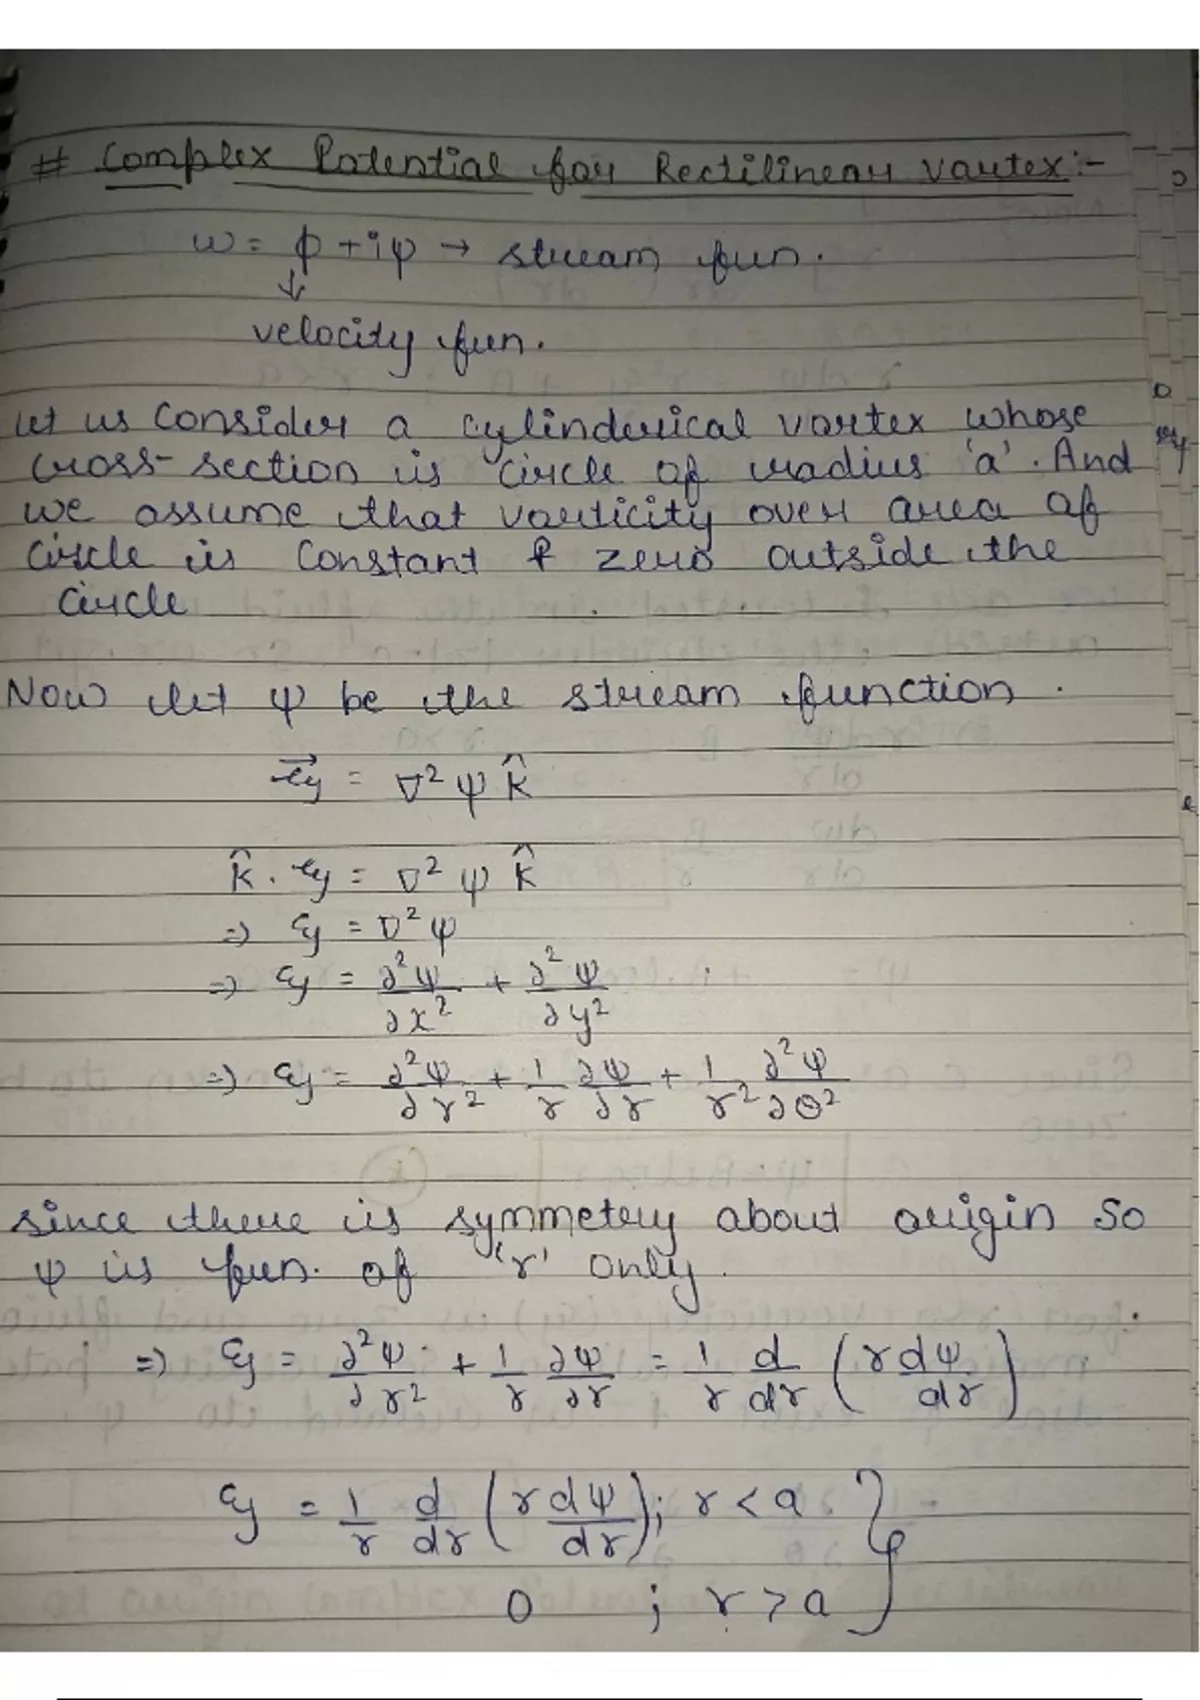 # Complex Potential for Rectilinear Vortex:-
w = ϕ + iψ → stream fun.
↓
velocity fun.
Let us Consider a cylinderical vortex whose
cross-section is circle of radius 'a'. And
we assume that vorticity over area of
circle is constant & zero outside the
circle
Now let ψ be the stream function.
= ∇²ψ k̂
k̂. = ∇²ψ k̂
⇒ ξ = ∇²ψ
⇒ ξ = ∂²ψ/∂x² + ∂²ψ/∂y²
⇒ ξ = ∂²ψ/∂r² + 1/r ∂ψ/∂r + 1/r² ∂²ψ/∂θ²
since there is symmetery about origin So
ψ is fun. of 'r' only.
⇒ ξ = ∂²ψ/∂r² + 1/r ∂ψ/∂r = 1/r d/dr (r dψ/dr)
ξ = 1/r d/dr (r dψ/dr); r < a }
0 ; r > a